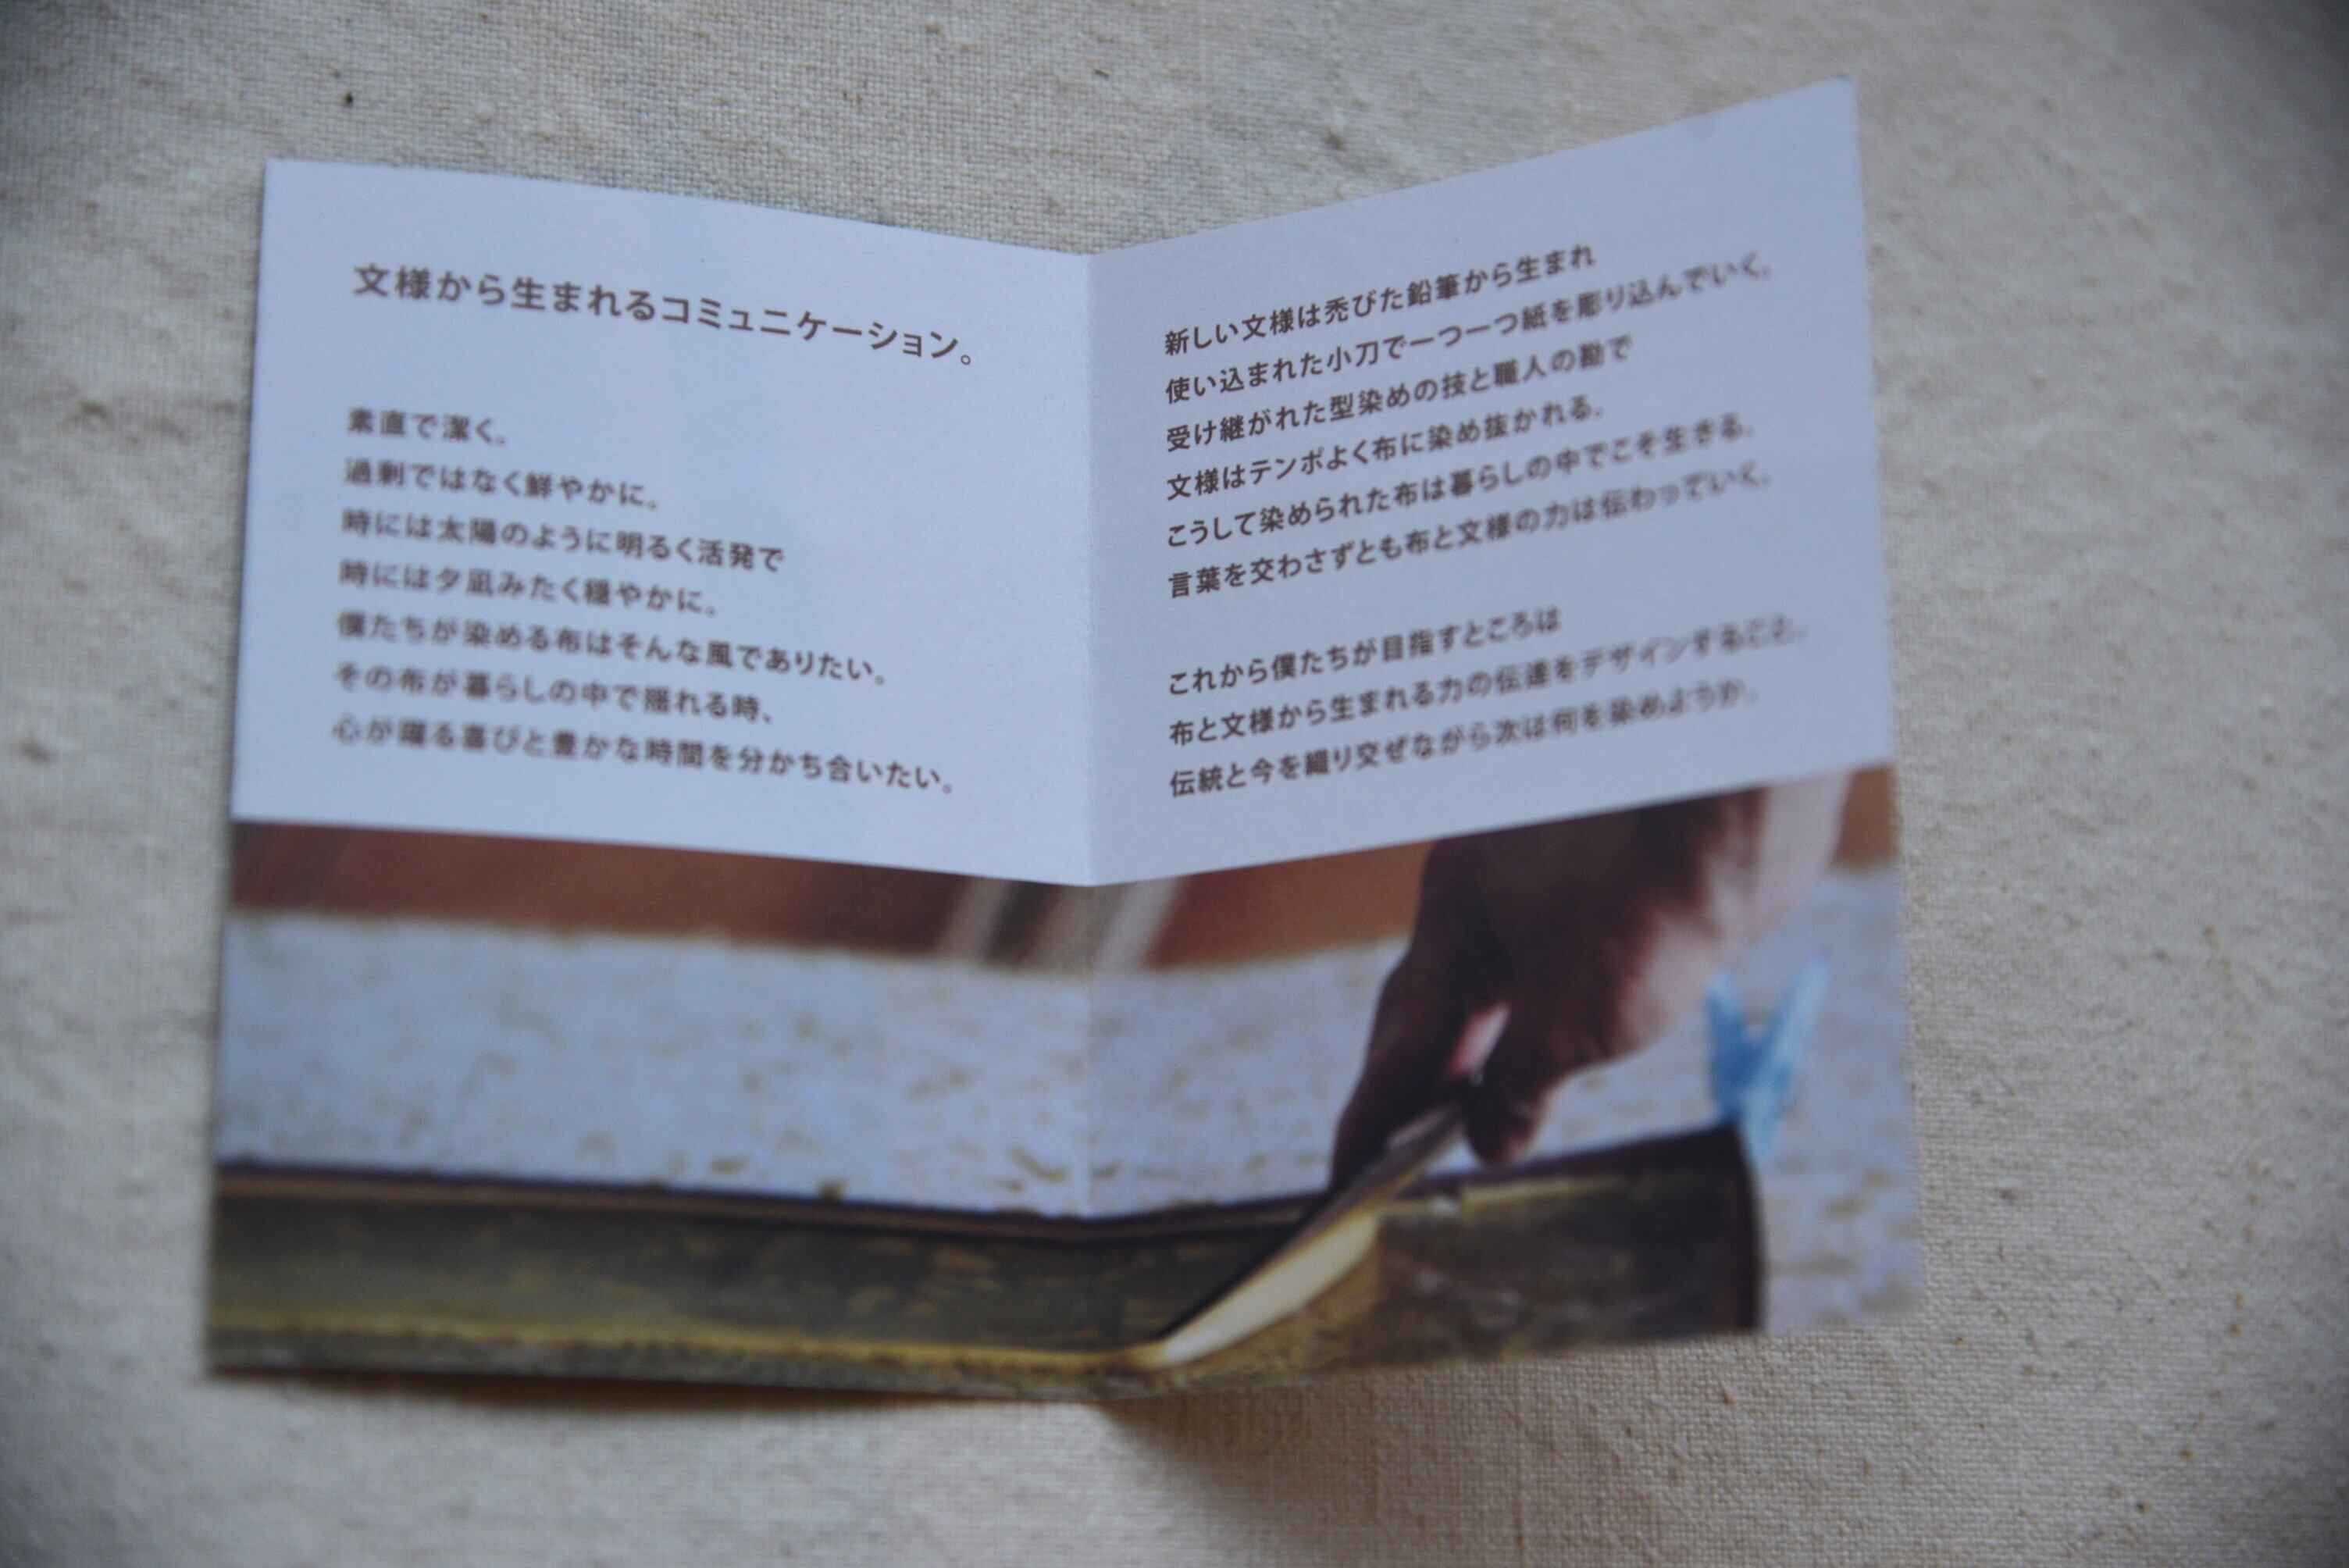 文様から生まれるコミュニケーション。
素直で潔く。
過剰ではなく鮮やかに。
時には太陽のように明るく活発で
時には夕凪みたく穏やかに。
僕たちが染める布はそんな風でありたい。
その布が暮らしの中で揺れる時、
心が躍る喜びと豊かな時間を分かち合いたい。
新しい文様は禿びた鉛筆から生まれ
使い込まれた小刀で一つ一つ紙を彫り込んでいく。
受け継がれた型染めの技と職人の勘で
文様はテンポよく布に染め抜かれる。
こうして染められた布は暮らしの中でこそ生きる。
言葉を交わさずとも布と文様の力は伝わっていく。
これから僕たちが目指すところは
布と文様から生まれる力の伝達をデザインすること。
伝統と今を織り交ぜながら次は何を染めようか。